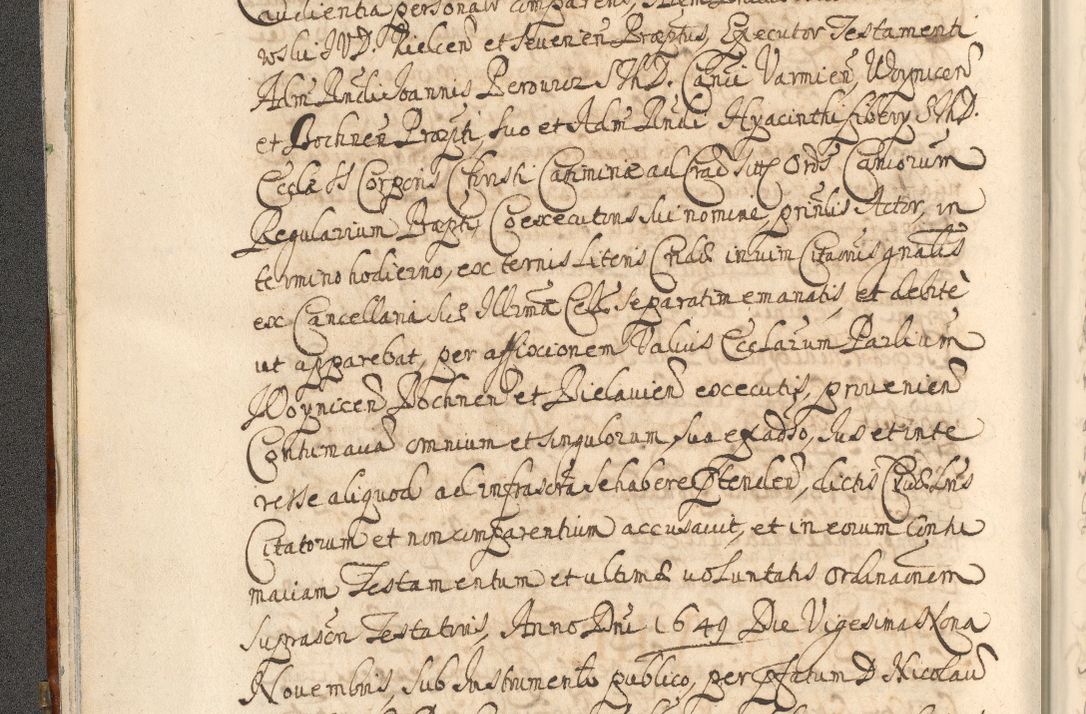 audientia personalr comparens,
wski JVD. Kielcen et Sevenen Præptus, Executor Testamenti
Adm Rndi Joannis Berowicz SThD. Canci Varmien, Woynicen
et Bochnen Præpti, suo et Adm Rndi Hyacinthi Libery SThD.
Ecclæ SS Corporis Christi Casiminiæ ad Crac sitæ Ord Canicorum
Regularium Præpti, Coexecutoris sui nomine, prinlis Actor, in
termino hodierno, ex ternis Literis Crludæ in vim Citaonis gnalis
ex Cancellaria Suæ Illrmæ Cels. separatim emanatis, et debite
ut apparebat, per affixionem Valuis Ecclarum Parlium
Woynicen Bochnen et Bielavien executis, provenien
Contumacia omnium et singulorum sua ex adso, Jus et inte
resse aliquod ad infrascrta se habere Ptenden, dictis Crud. Lris
Citatorum et non comparentium accusavit, et in eorum Contu
maciam Testamentum et ultimæ voluntatis ordinaonem
suprascri Testatoris, Anno Dni 1649 Die Vigesima Nona
Novembris, sub Instrumento publico, per pfatum D Nicolaū